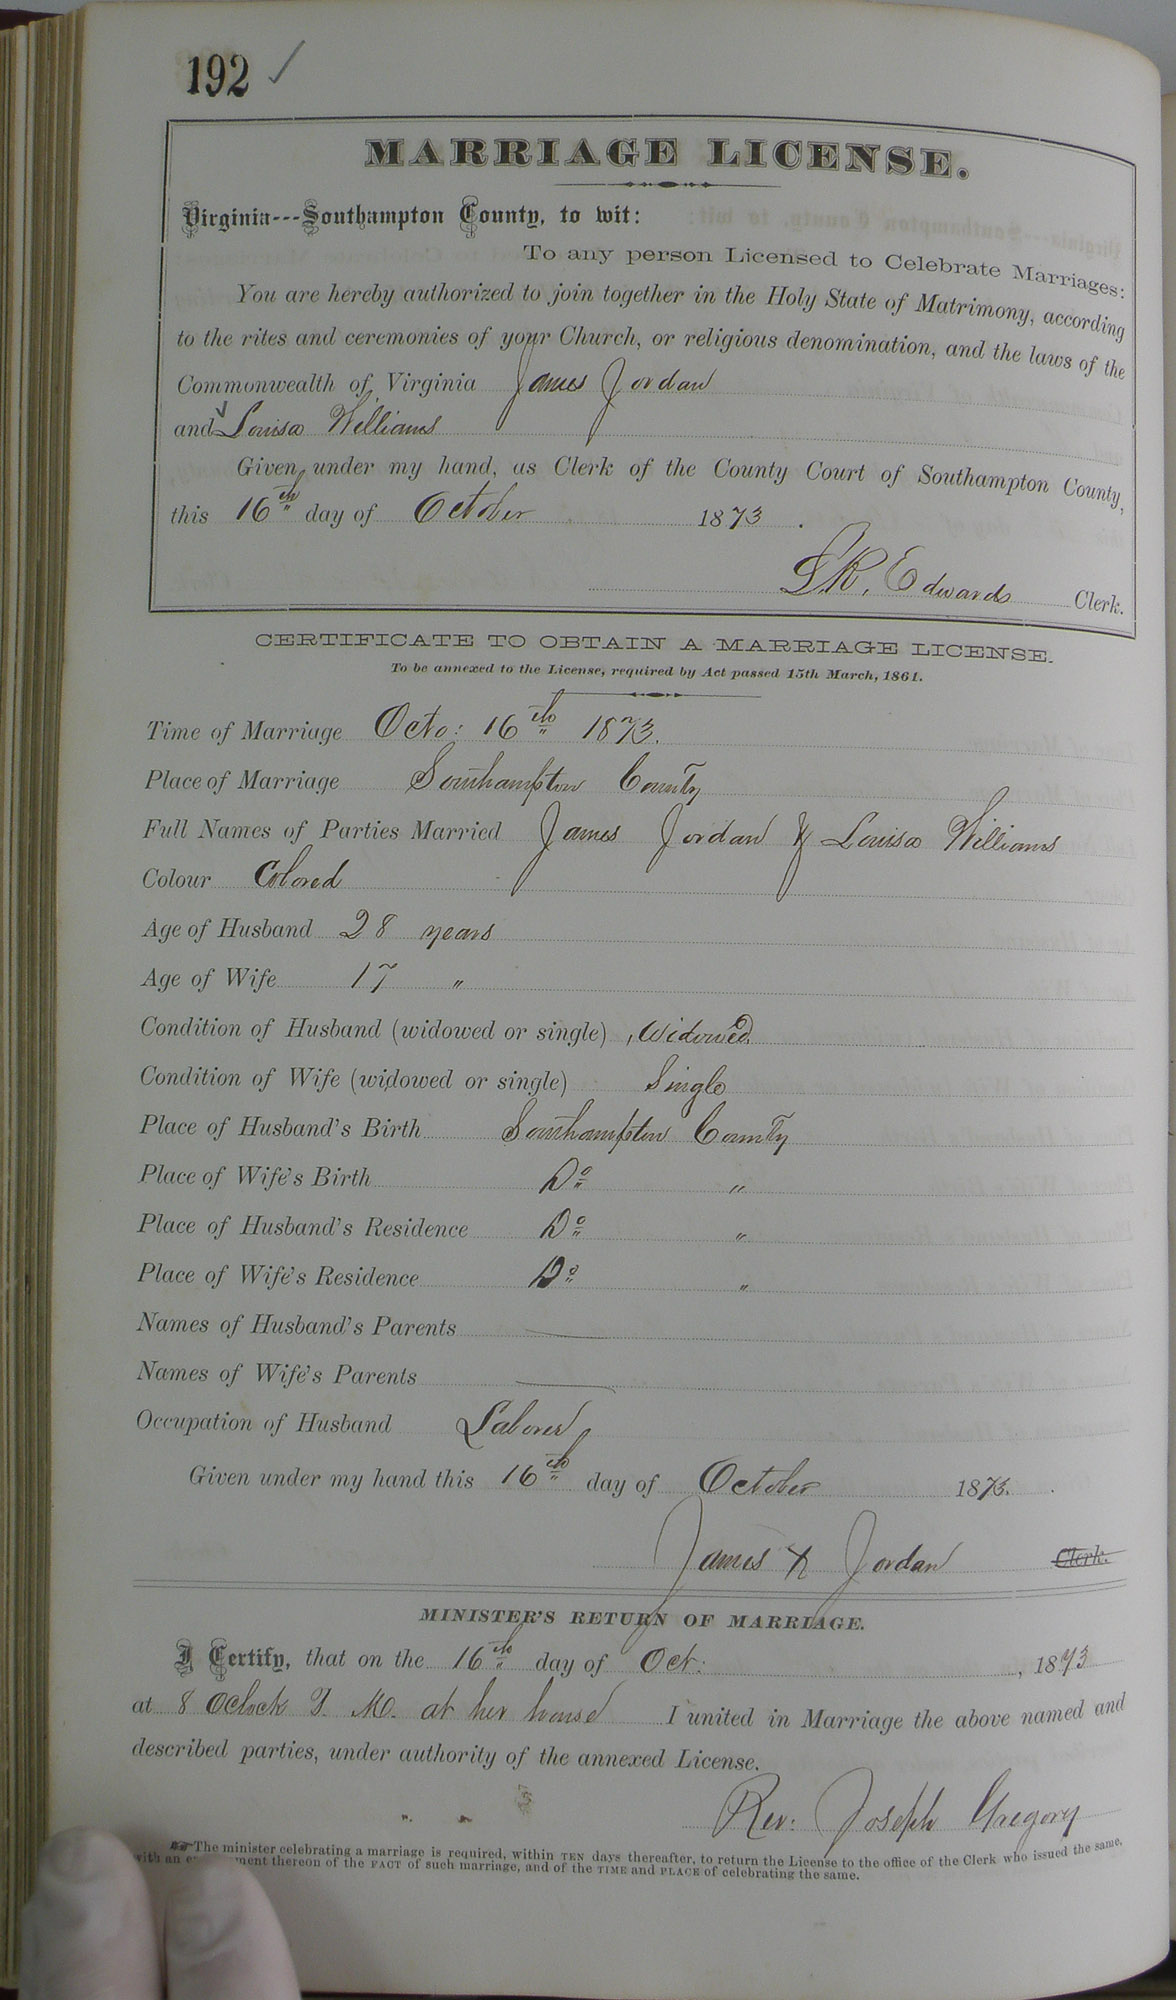 192 ✓
MARRIAGE LICENSE.
Virginia---Southampton County, to wit:
To any person Licensed to Celebrate Marriages:
You are hereby authorized to join together in the Holy State of Matrimony, according
to the rites and ceremonies of your Church, or religious denomination, and the laws of the
Commonwealth of Virginia James Jordan
and Louisa Williams
Given under my hand, as Clerk of the County Court of Southampton County,
this 16th day of October 1873.
L.R. Edwards Clerk.
CERTIFICATE TO OBTAIN A MARRIAGE LICENSE.
To be annexed to the License, required by Act passed 15th March, 1861.
Time of Marriage Octo: 16th 1873.
Place of Marriage Southampton County
Full Names of Parties Married James Jordan & Louisa Williams
Colour Colored
Age of Husband 28 years
Age of Wife 17 "
Condition of Husband (widowed or single) Widowed
Condition of Wife (widowed or single) Single
Place of Husband's Birth Southampton County
Place of Wife's Birth Do "
Place of Husband's Residence Do "
Place of Wife's Residence Do "
Names of Husband's Parents
Names of Wife's Parents
Occupation of Husband Laborer
Given under my hand this 16th day of October 1873.
James X Jordan Clerk.
MINISTER'S RETURN OF MARRIAGE.
I Certify, that on the 16th day of Oct: , 1873
at 8 Oclock P. M. at her house I united in Marriage the above named and
described parties, under authority of the annexed License.
Rev: Joseph Gregory
The minister celebrating a marriage is required, within TEN days thereafter, to return the License to the office of the Clerk who issued the same,
with an thereon of the FACT of such marriage, and of the TIME and PLACE of celebrating the same.